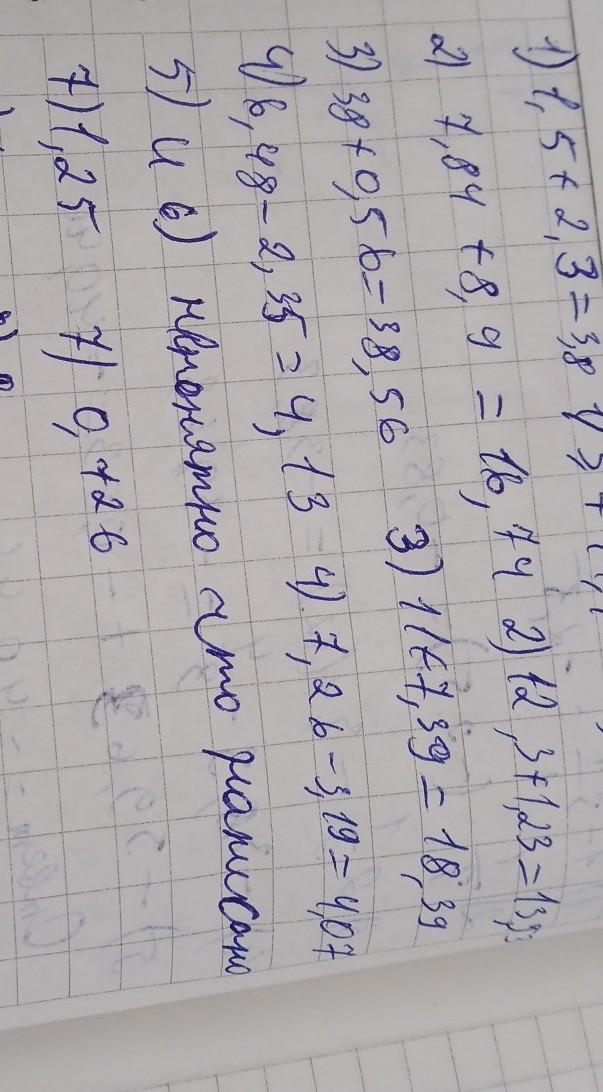 1) 1,5 + 2,3 = 3,8 1)
2) 7,84 + 8,9 = 16,74 2) 12,3 + 1,23 = 13,
3) 38 + 0,56 = 38,56 3) 11 + 7,39 = 18,39
4) 6,48 - 2,35 = 4,13 4) 7,26 - 3,19 = 4,07
5) и 6) непонятно что написано
7) 1,25 7) 0,+26